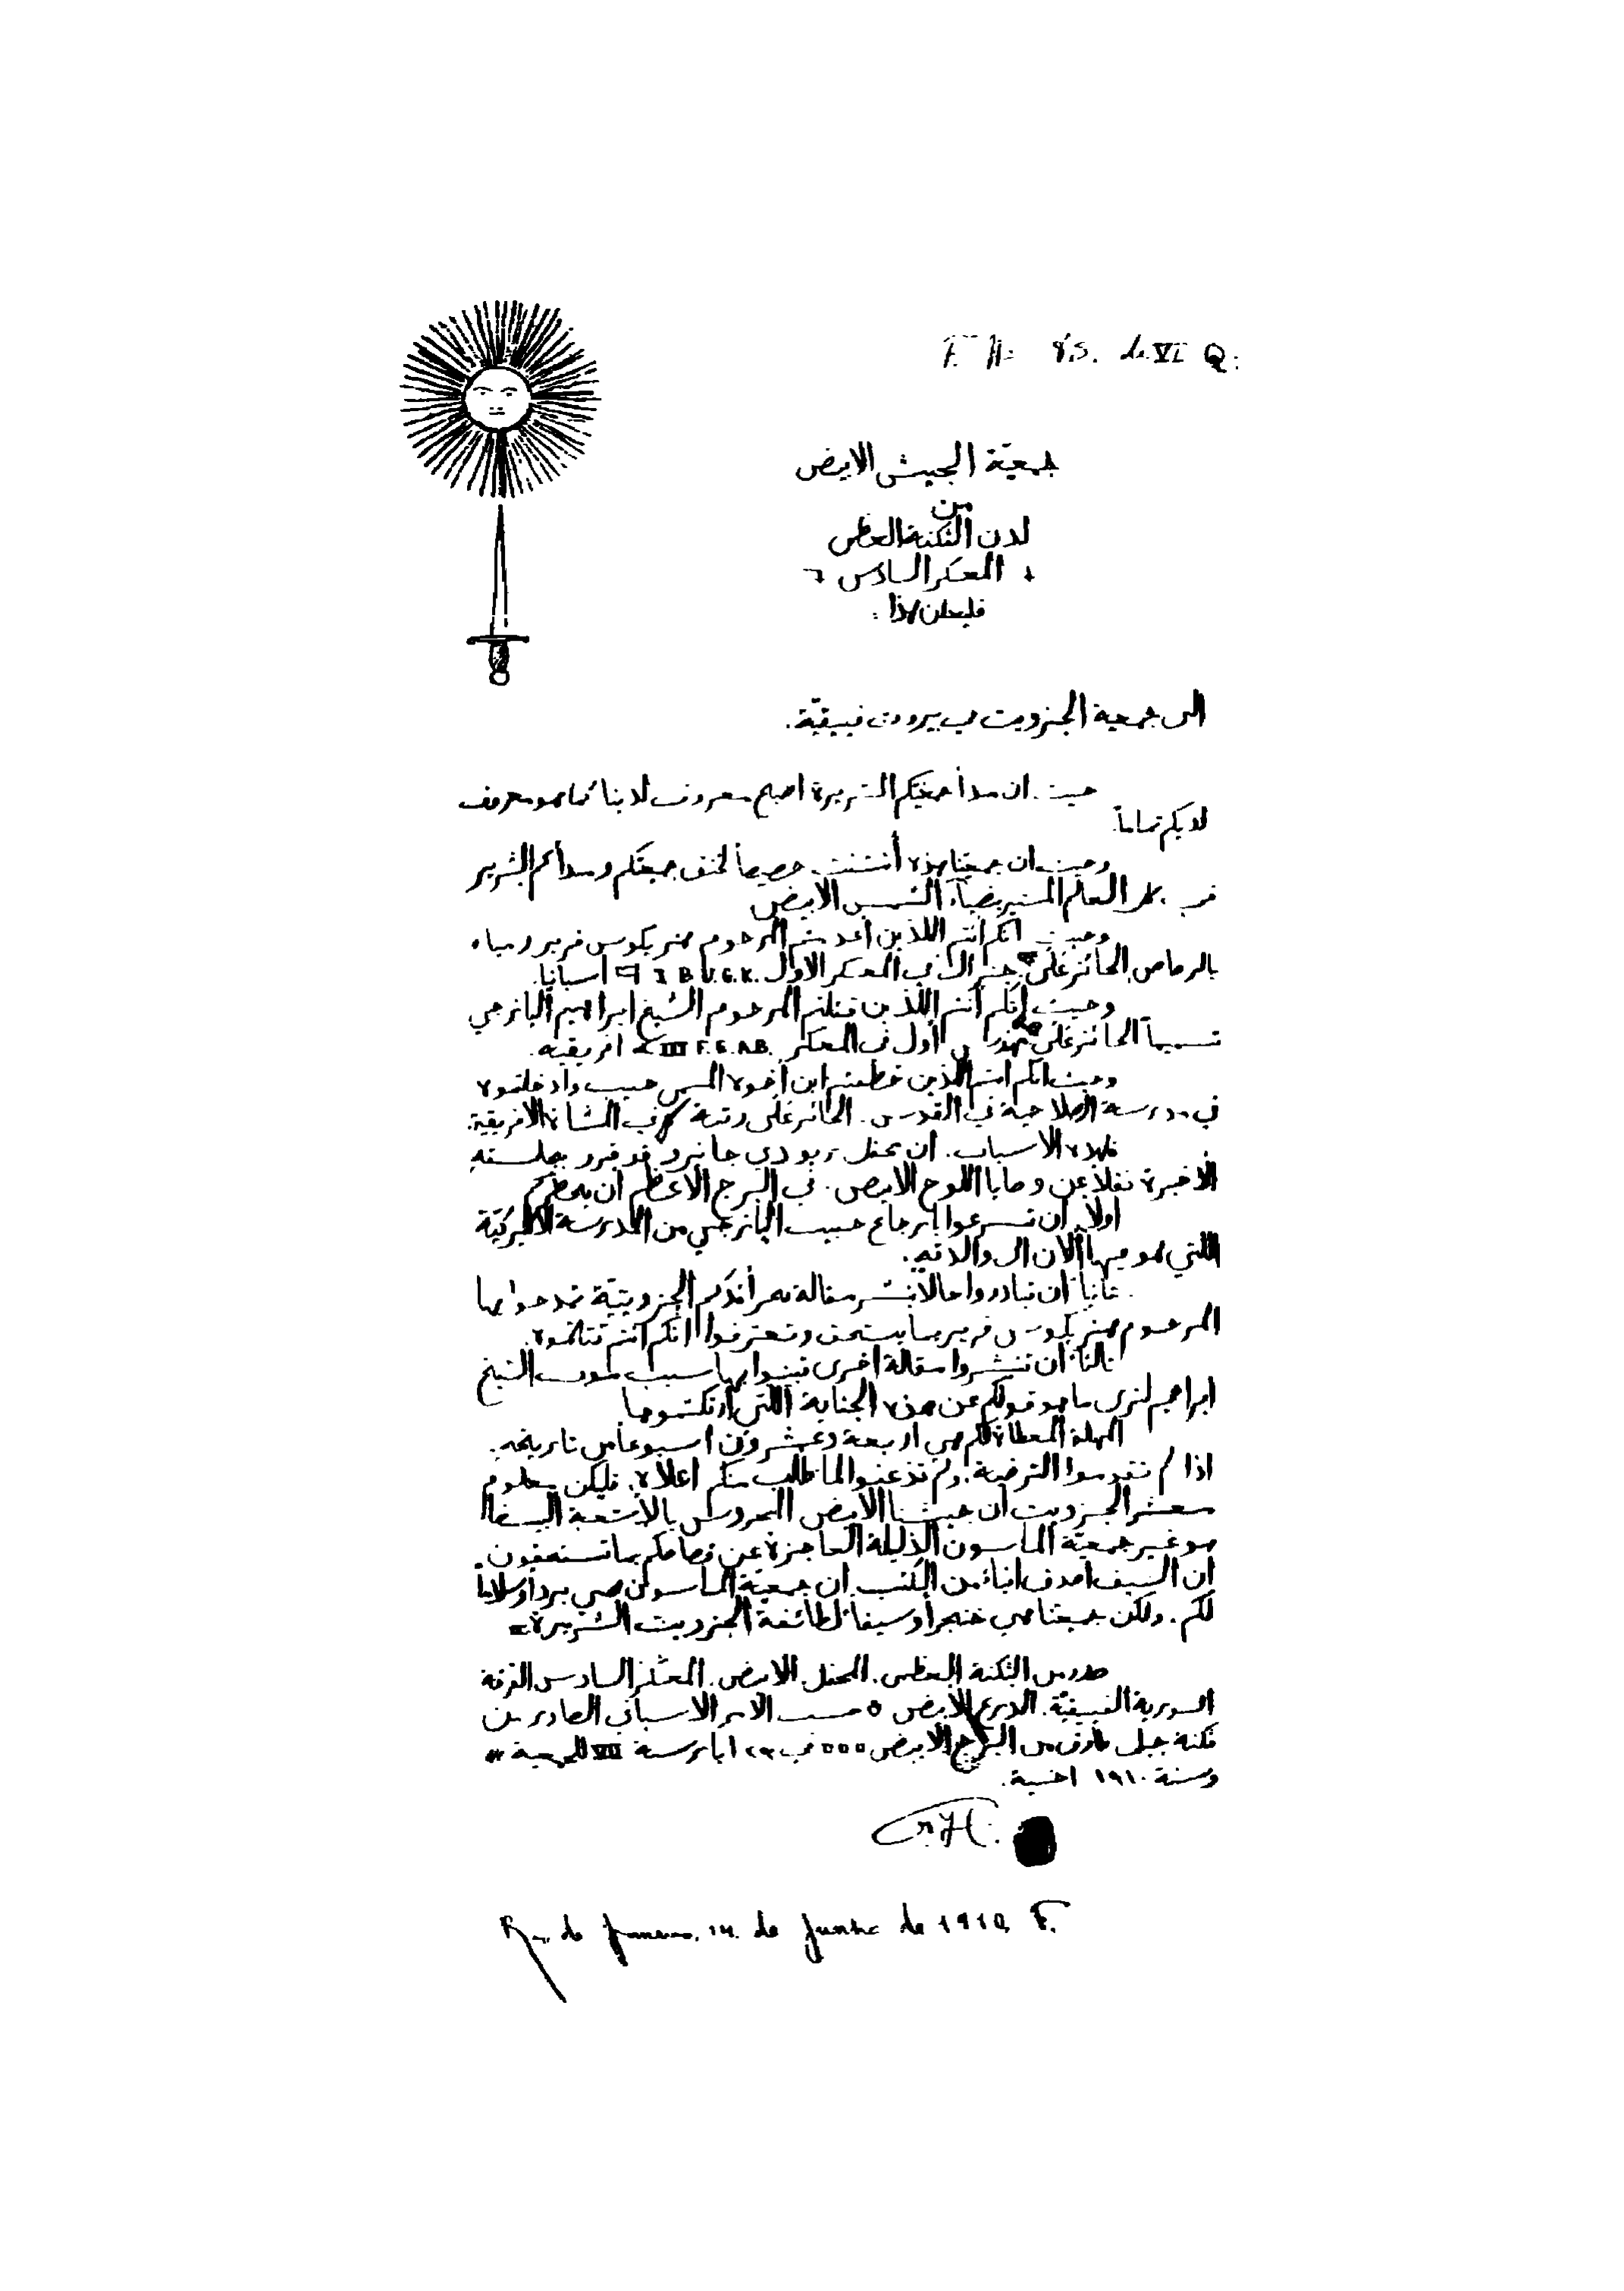 de VI Q.
جمعيّة الجيش الابيض
من
لدن الثكنة العظمى
المعسكر السادس
فليعلن هذا.
الى جمعية الجزويت في بيروت فينيقيّة.
حيث ان مبدأ جمعيّتكم الشريرة اصبح معروف لدينا كما هو معروف
لديكم تماماً.
وحيث ان جمعيتنا هذه أنشئت خصيصاً لخنق جمعيتكم ومبدأكم الشرير
في العالم المستنير بضياء الشمس الابيض
وحيث انكم انتم اللذين أعدمتم المرحوم فرير رمياً
بالرصاص الحائز على جنرال في المعسكر الاول I B U.G.K. اسبانيا.
وحيث إنكم أنتم اللذين قتلتم المرحوم الشيخ ابراهيم اليازجي
تسميماً الحائز على أول في المعسكر III F.G.A.B. افريقيه.
وحيث انكم انتم اللذين خطفتم ابن أخوه المسمى حبيب وادخلتموه
في مدرسة الصلاحية في القدس. الحائز على رتبة في الشأة الافريقية.
فلهذه الاسباب. ان محفل ريودي جانيرو قد قرر بجلسته
الاخيرة نقلاً عن وصايا اللوح الابيض. في البرج الاعظم أن يحظركم
اولاً. ان تسرعوا بإرجاع حبيب اليازجي من المدرسة الاكليركيّة
اللتي هو فيها ألآن الى والدته.
ثانياً أن تبادروا حالاً بنشر مقالة بجرائدكم الجزويتيّة تمدحوا بها
المرحوم فرير بما يستحق وتعترفوا انكم انتم قتلتموه.
ثالثاً أن تنشروا مقالة اخرى تبينوا بها سبب موت الشيخ
ابراهيم لنرى ما هو قولكم عن هذه الجناية اللتي ارتكبتموها
المهلة المعطاة لكم هي اربعة وعشرون اسبوعاً من تاريخه.
اذا لم تقدموا الترضية. ولم تذعنوا لما نطلب منكم اعلاه. فليكن معلوم
معشر الجزويت أن جيشنا الأبيض المحروس بالأشعة البيضا
هو غير جمعيّة الماسون الذليلة العاجزة عن قصاصكم بما تستحقون.
ان السيف اصدق انباءً من الكتب. ان جمعيّة الماسون هي برداً وسلاماً
لكم. ولكن جمعيتنا هي خنجراً وسيفاً لطائفة الجزويت الشريرة=
صدر من الثكنة العظمى. المحفل الابيض. المعسكر السادس الفرقة
السورية الفينيقيّة. الدرع الأبيض ٥ حسب الامر الاسباني الصادر من
ثكنة جبل طارق من البرج الابيض ٥٥٥ في ٢٩ ايار سنة VII للجمعية
وسنة ١٩١٠
Rio de Janeiro. 14 de Junho de 1910 F.